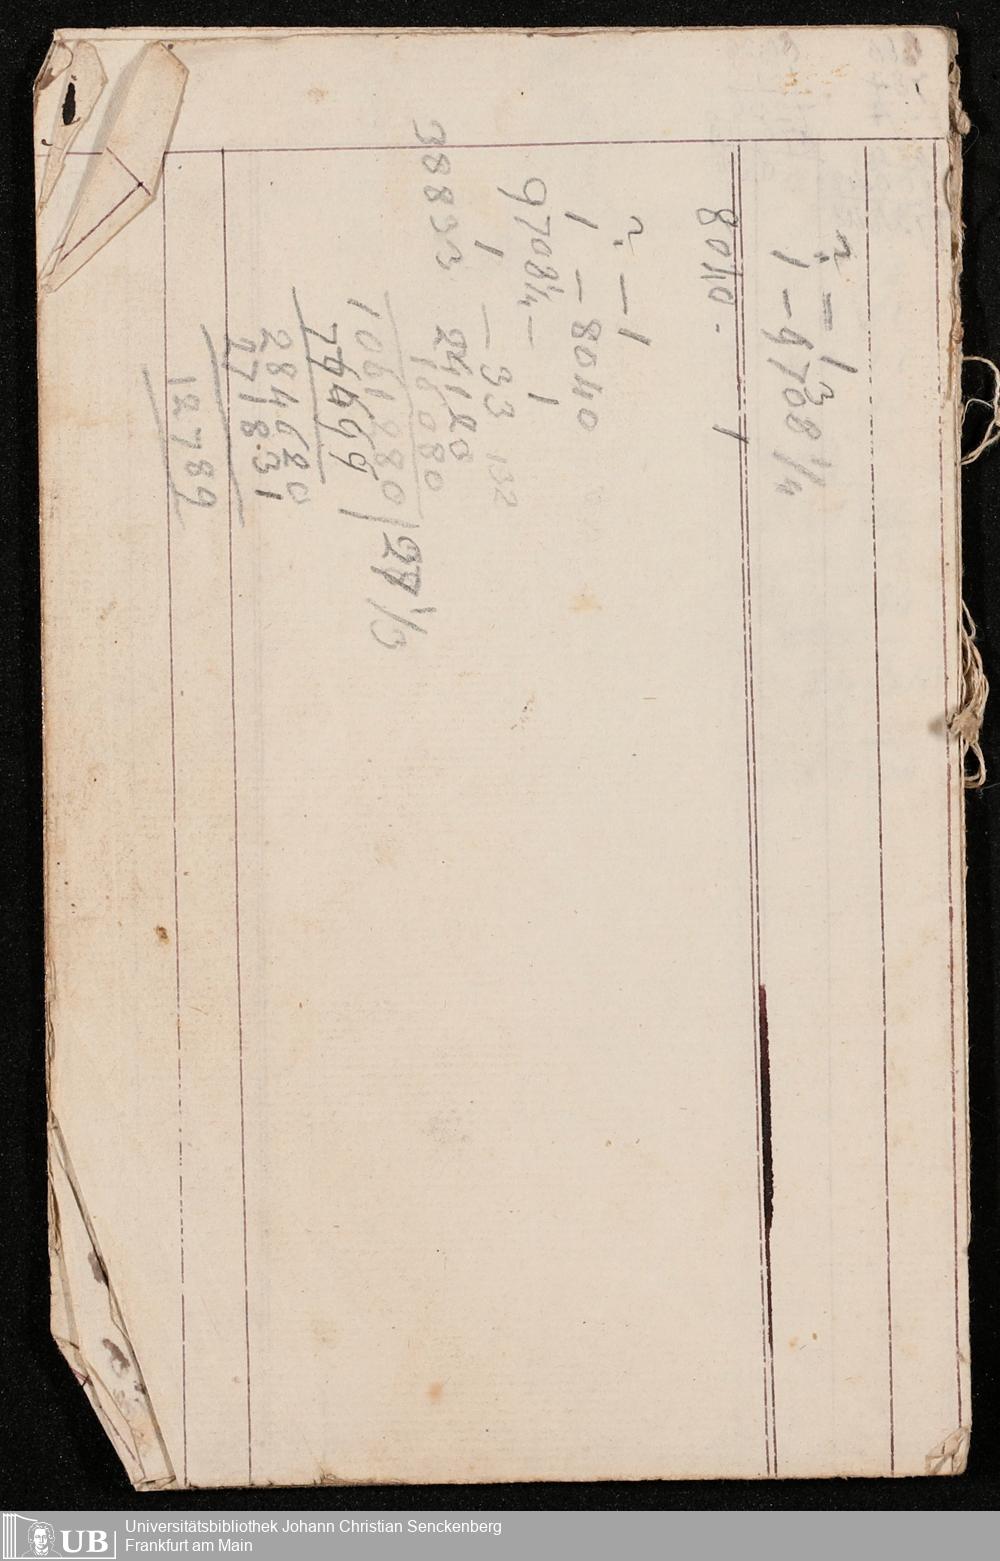 ฺ — 1
1 — 9708 1/4
8040. 1
— 1
1 — 8040
9708 1/4 — 1
1 — 33 132
38833 24120
10080
1061280 | 27 1/3
77666
284620
2718.31
12789
Universitätsbibliothek Johann Christian Senckenberg
Frankfurt am Main
UB